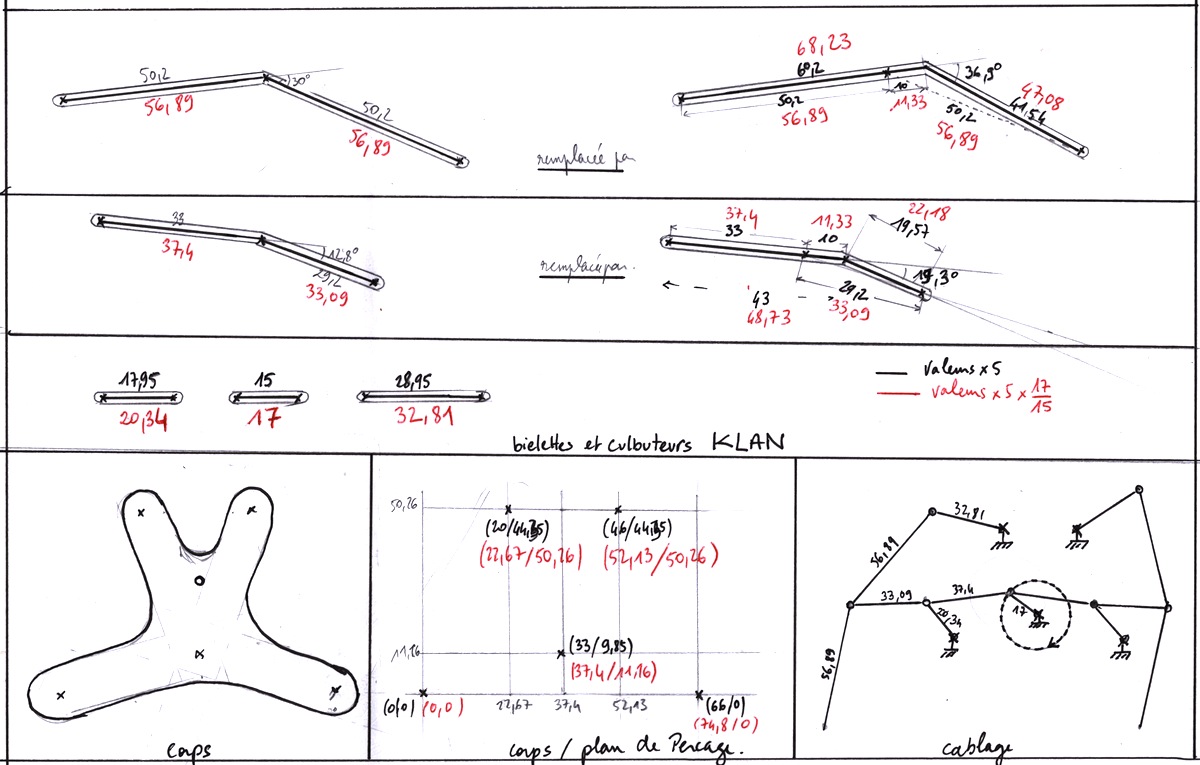 50,2
56,89
30°
50,2
56,89
remplacée par
68,23
60,2
50,2
56,89
10
11,33
36,9°
47,08
41,54
50,2
56,89
33
37,4
12,8°
29,2
33,09
remplacé par
37,4
33
11,33
10
22,18
19,57
19,3°
29,2
33,09
43
48,73
17,95
20,34
15
17
28,95
32,81
valeurs x 5
valeurs x 5 x 17/15
bielettes et culbuteurs KLAN
corps
50,26
(20/44,35)
(22,67/50,26)
(46/44,35)
(52,13/50,26)
11,26
(33/9,85)
(37,4/11,26)
(0/0) (0,0)
22,67
37,4
52,13
(66/0)
(74,8/0)
corps / plan de Percage.
32,81
56,89
33,09
37,4
20,34
17
56,89
cablage